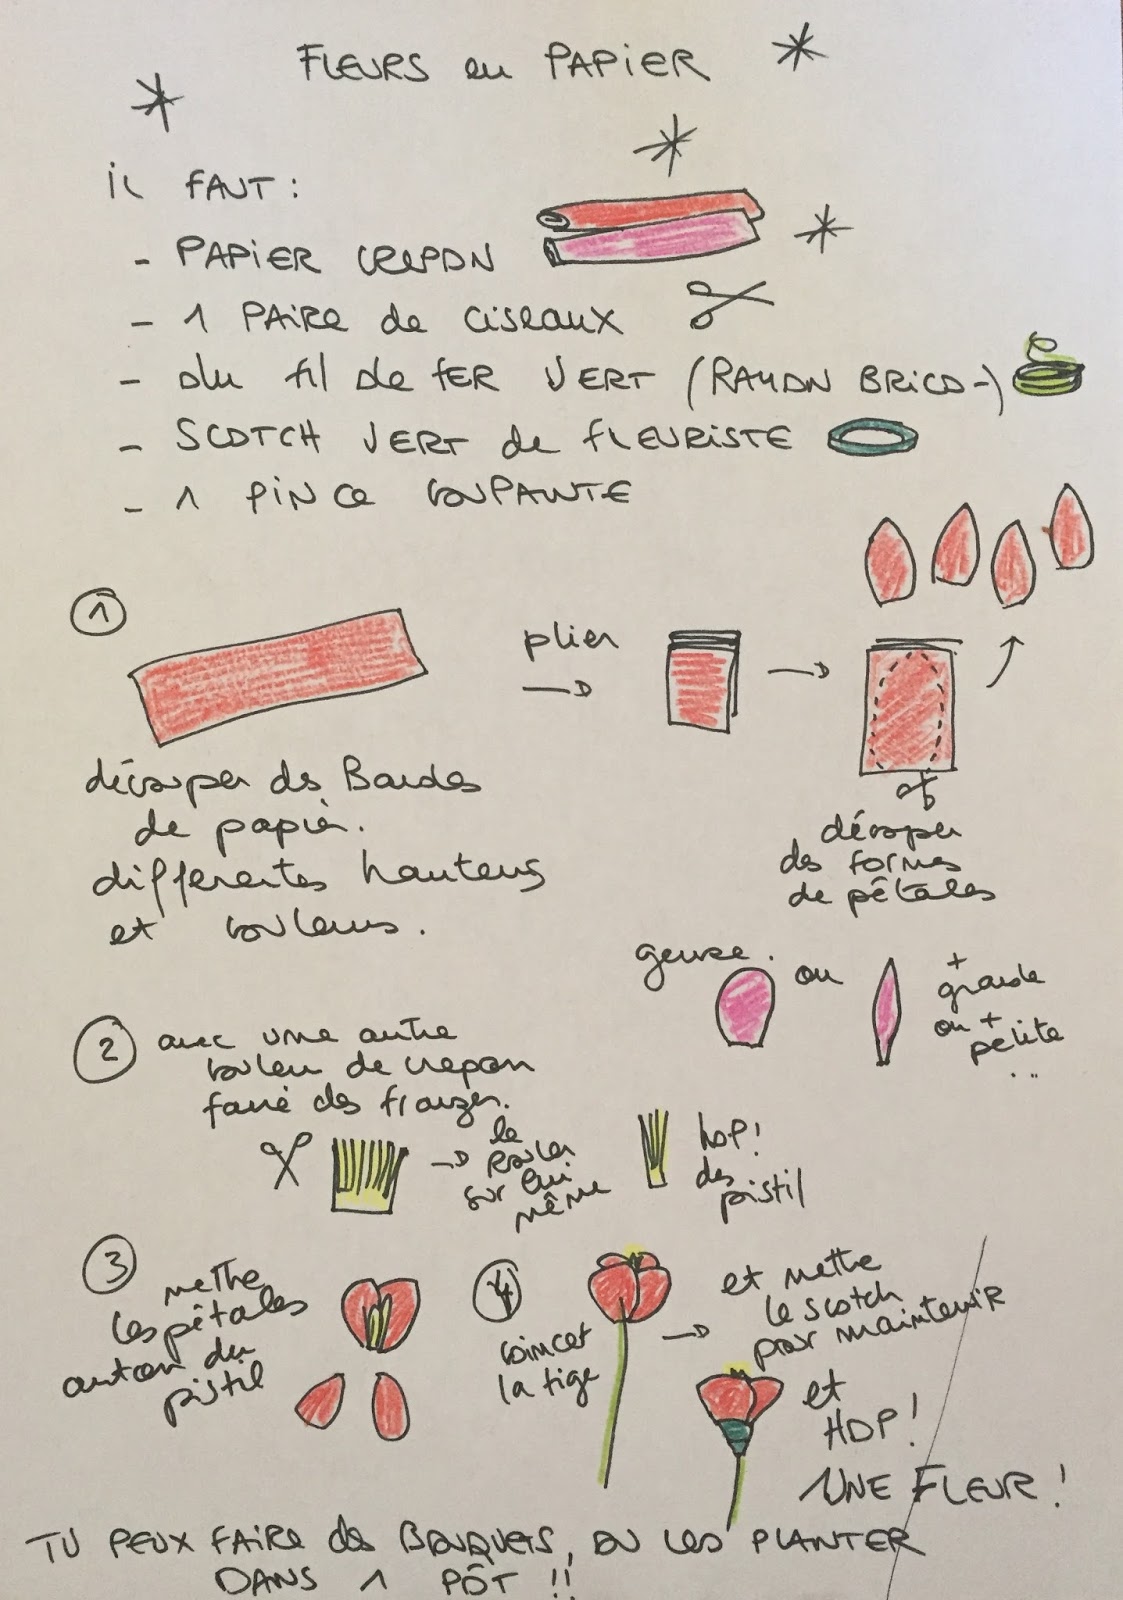 FLEURS en PAPIER
il FAUT :
- PAPIER CREPON
- 1 PAIRE de ciseaux
- du fil de fer VERT (RAYON BRICO-)
- SCOTCH VERT de FLEURISTE
- 1 PINCE COUPANTE
1
plier
découper des Bandes
de papier.
différentes hauteurs
et couleurs.
découper
des formes
de pétales
genre.
ou
+
grande
ou +
petite
...
2 avec une autre
couleur de crepon
faire des franges.
le
rouler
sur lui
même
hop!
des
pistil
3
mettre
les pétales
autour du
pistil
4
coincer
la tige
et mettre
le scotch
pour maintenir
et
HOP!
UNE FLEUR!
TU PEUX FAIRE des BOUQUETS, ou les PLANTER
DANS 1 PÔT !!